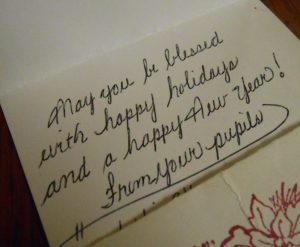 May you be blessed
with happy holidays
and a happy New Year!
From Your pupils